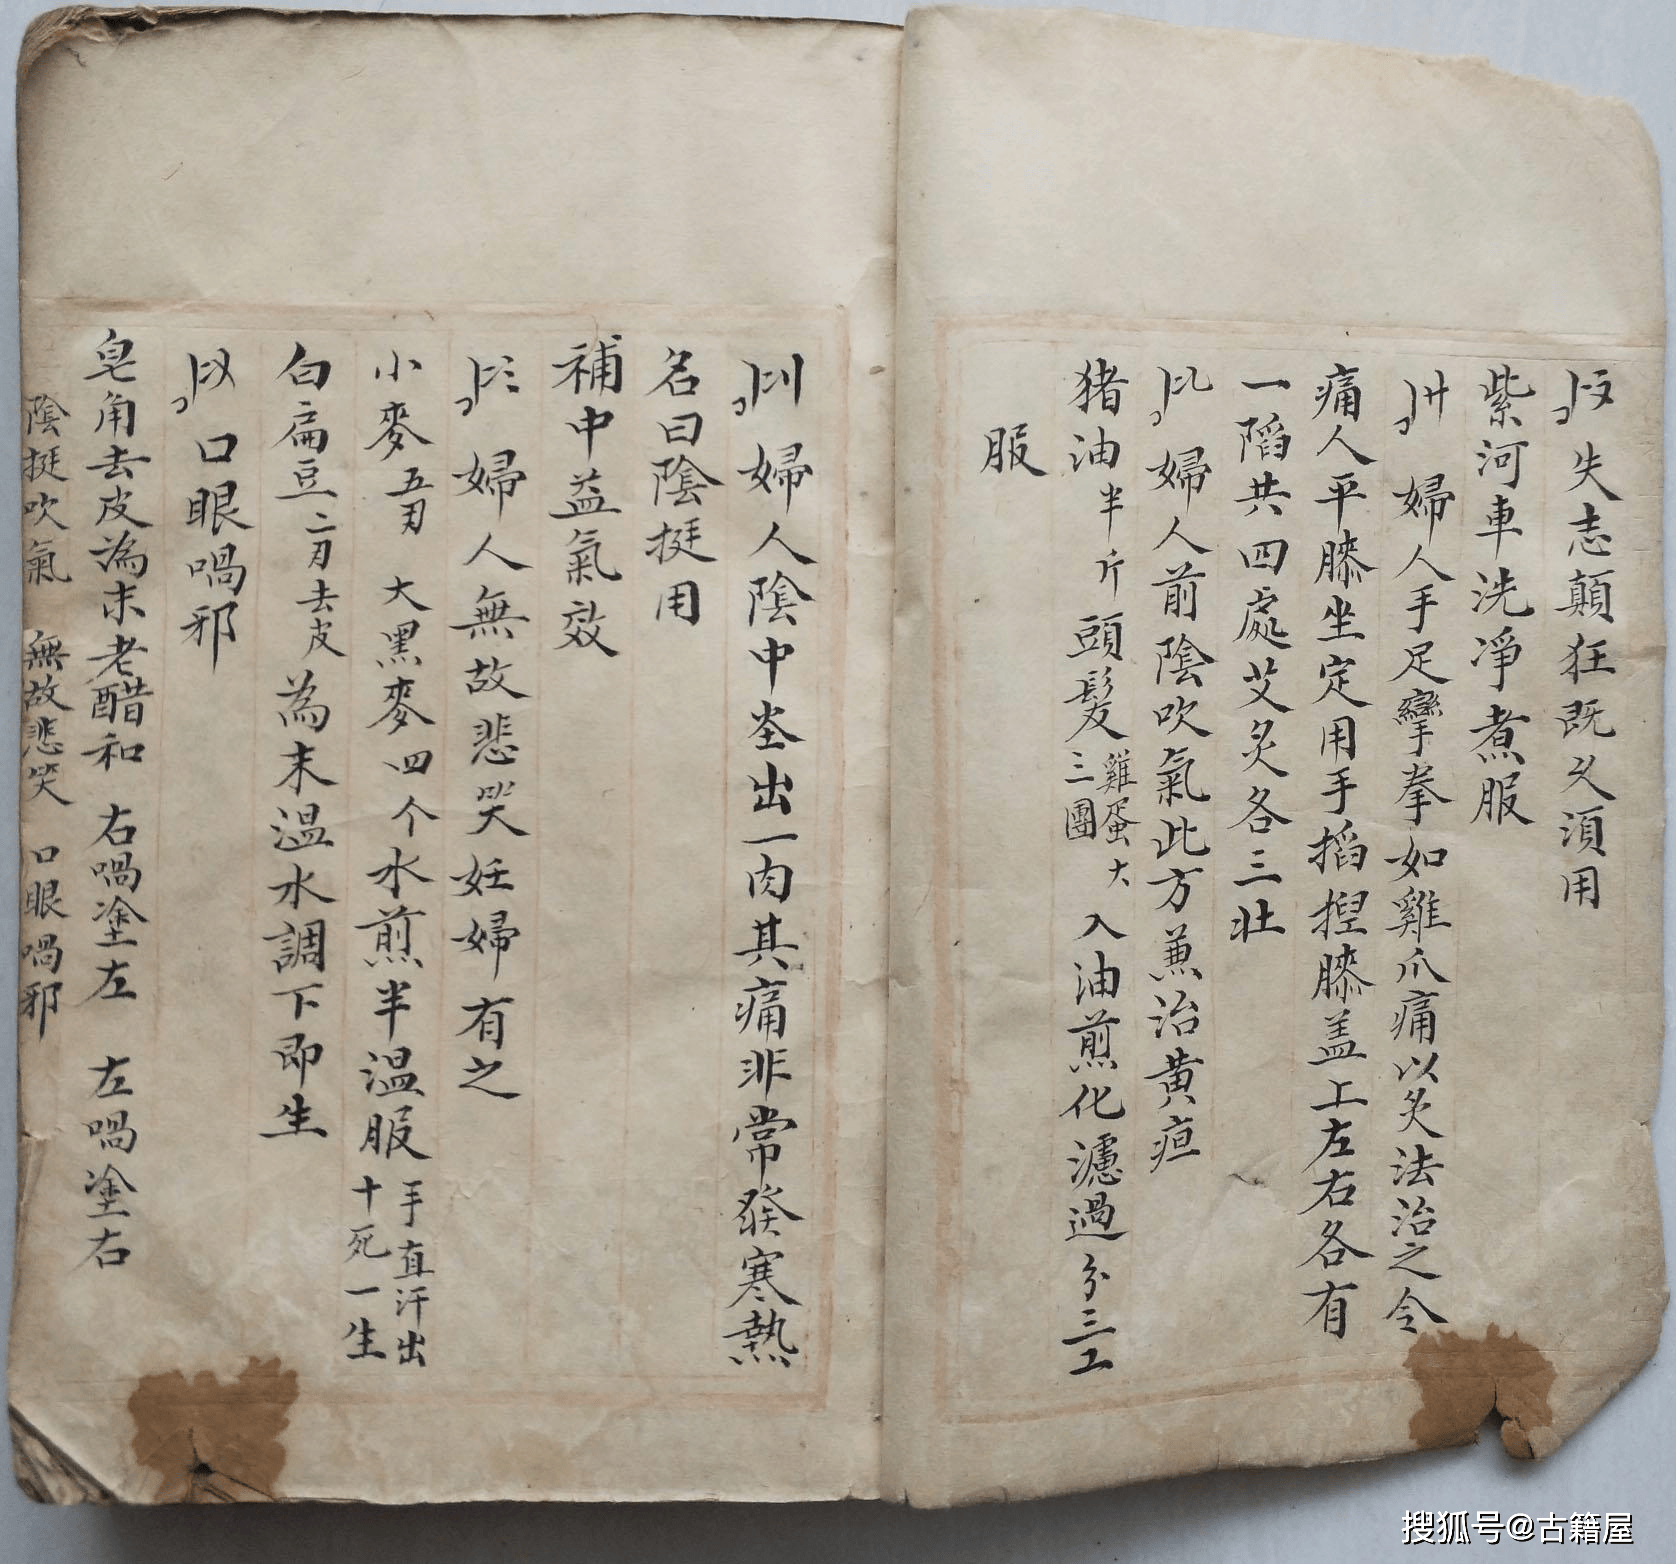 失志顛狂既久須用
紫河車洗淨煮服
婦人手足攣拳如雞爪痛以炙法治之令
痛人平膝坐定用手搯揑膝盖上左右各有
一陷共四處艾炙各三壯
婦人前陰吹氣此方兼治黃疸
猪油半斤頭髮雞蛋大三團入油煎化濾過分三
服
婦人陰中峑出一肉其痛非常發寒熱
名曰陰挺用
補中益氣效
婦人無故悲哭妊婦有之
小麥五大黑麥四个水煎半温服手直汗出十死一生
白扁豆二去皮為末温水調下即生
口眼喎邪
皂角去皮為末老醋和 右喎塗左 左喎塗右
陰挺吹氣 無故悲哭 口眼喎邪
搜狐号@古籍屋